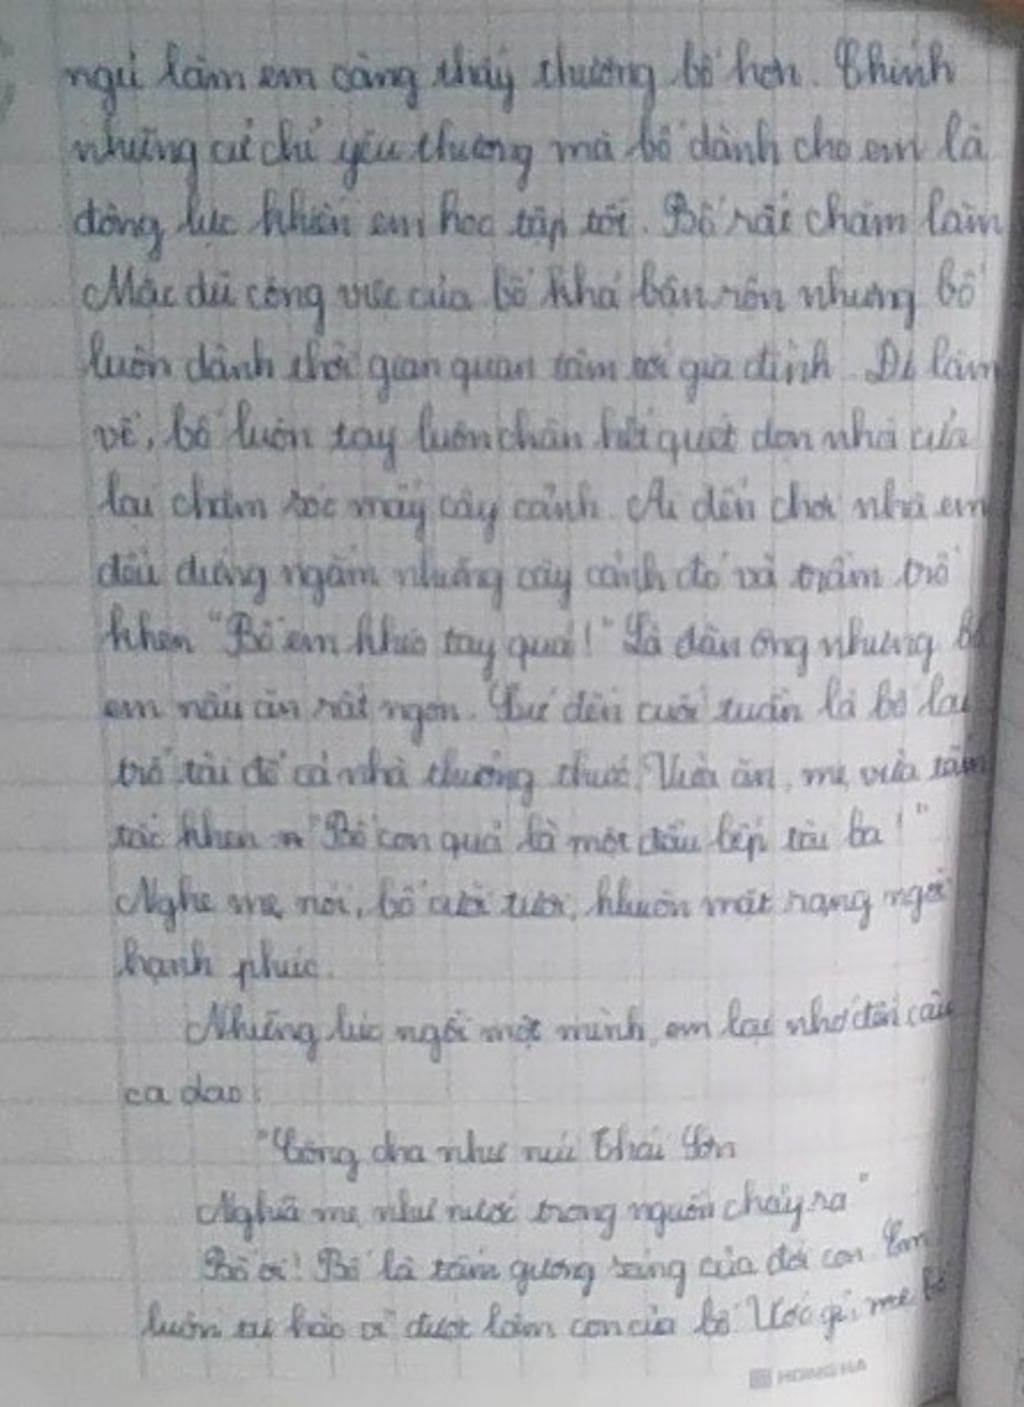 ngủ làm em càng thấy thương bố hơn. Chính
những cử chỉ yêu thương mà bố dành cho em là
động lực khiến em học tập tốt. Bố rất chăm làm
Mặc dù công việc của bố khá bận rộn nhưng bố
luôn dành thời gian quan tâm tới gia đình. Đi làm
về, bố luôn tay luôn chân hết quét dọn nhà cửa
lại chăm sóc mấy cây cảnh. Ai đến chơi nhà em
đều dừng ngắm những cây cảnh đó và trầm trồ
khen "Bố em khéo tay quá!" Là đàn ông nhưng bố
em nấu ăn rất ngon. Cứ đến cuối tuần là bố lại
trổ tài để cả nhà thưởng thức. Vừa ăn, mẹ vừa tấm
tắc khen "Bố con quả là một đầu bếp tài ba!"
Nghe mẹ nói, bố cười tươi, khuôn mặt rạng ngời
hạnh phúc.
Những lúc ngồi một mình, em lại nhớ đến câu
ca dao:
"Công cha như núi Thái Sơn
Nghĩa mẹ như nước trong nguồn chảy ra"
Bố ơi! Bố là tấm gương sáng của đời con. Con
luôn tự hào vì được làm con của bố. Ước gì, mẹ bố
HONG HA